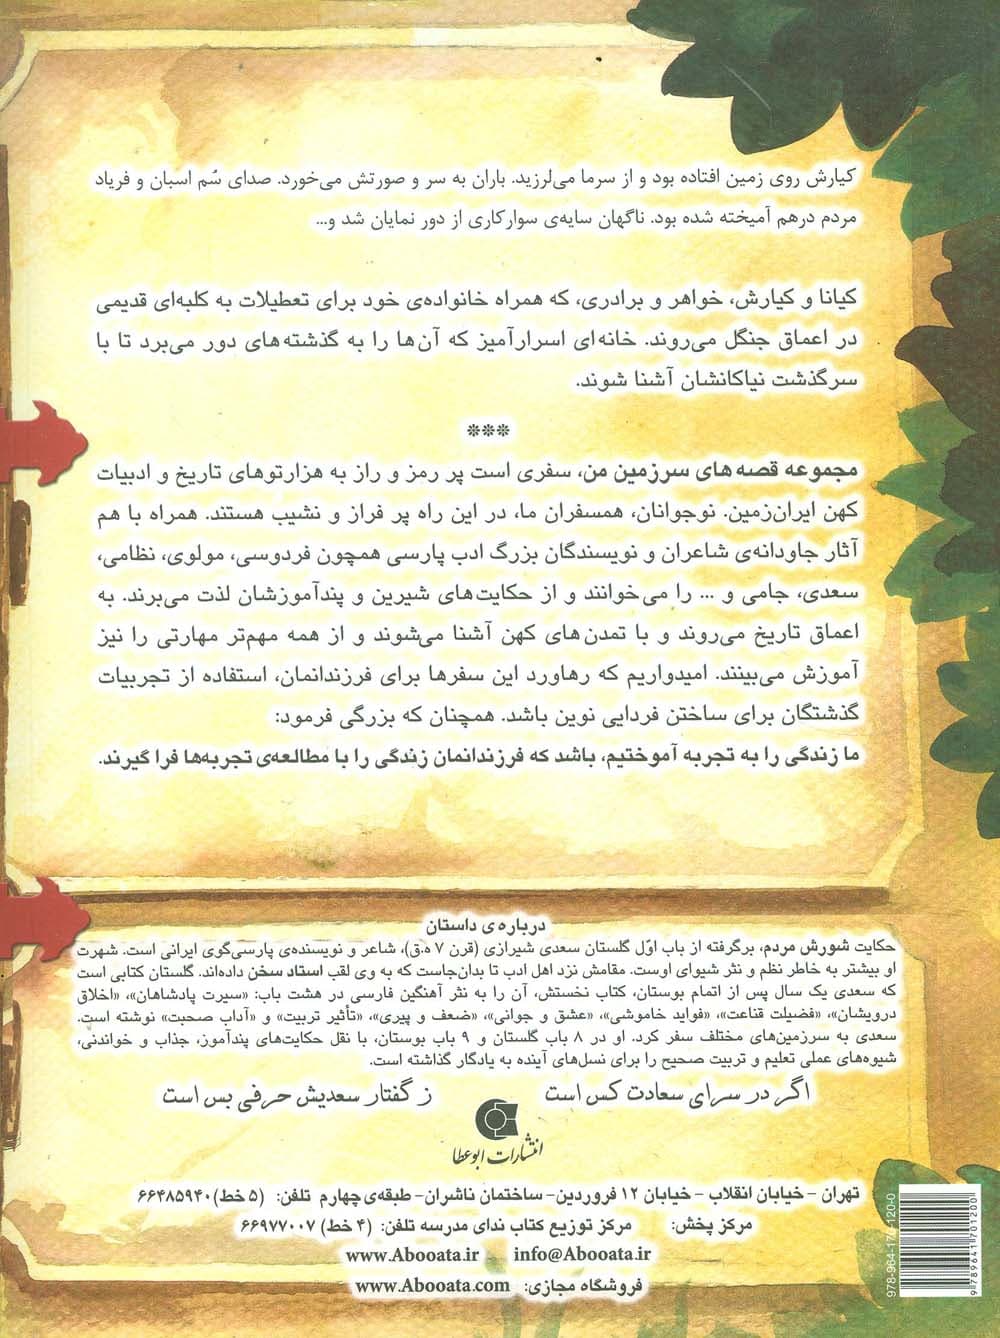 کیارش روی زمین افتاده بود و از سرما می‌لرزید. باران به سر و صورتش می‌خورد. صدای سُم اسبان و فریاد
مردم درهم آمیخته شده بود. ناگهان سایه‌ی سوارکاری از دور نمایان شد و...
کیانا و کیارش، خواهر و برادری، که همراه خانواده‌ی خود برای تعطیلات به کلبه‌ای قدیمی
در اعماق جنگل می‌روند. خانه‌ای اسرارآمیز که آن‌ها را به گذشته‌های دور می‌برد تا با
سرگذشت نیاکانشان آشنا شوند.
***
مجموعه قصه‌های سرزمین من، سفری است پر رمز و راز به هزارتوهای تاریخ و ادبیات
کهن ایران‌زمین. نوجوانان، همسفران ما، در این راه پر فراز و نشیب هستند. همراه با هم
آثار جاودانه‌ی شاعران و نویسندگان بزرگ ادب پارسی همچون فردوسی، مولوی، نظامی،
سعدی، جامی و ... را می‌خوانند و از حکایت‌های شیرین و پندآموزشان لذت می‌برند. به
اعماق تاریخ می‌روند و با تمدن‌های کهن آشنا می‌شوند و از همه مهم‌تر مهارتی را نیز
آموزش می‌بینند. امیدواریم که رهاورد این سفرها برای فرزندانمان، استفاده از تجربیات
گذشتگان برای ساختن فردایی نوین باشد. همچنان که بزرگی فرمود:
ما زندگی را به تجربه آموختیم، باشد که فرزندانمان زندگی را با مطالعه‌ی تجربه‌ها فرا گیرند.
درباره‌ی داستان
حکایت شورش مردم، برگرفته از باب اوّل گلستان سعدی شیرازی (قرن ۷ ه.ق)، شاعر و نویسنده‌ی پارسی‌گوی ایرانی است. شهرت
او بیشتر به خاطر نظم و نثر شیوای اوست. مقامش نزد اهل ادب تا بدان‌جاست که به وی لقب استاد سخن داده‌اند. گلستان کتابی است
که سعدی یک سال پس از اتمام بوستان، کتاب نخستش، آن را به نثر آهنگین فارسی در هشت باب: «سیرت پادشاهان»، «اخلاق
درویشان»، «فضیلت قناعت»، «فواید خاموشی»، «عشق و جوانی»، «ضعف و پیری»، «تأثیر تربیت» و «آداب صحبت» نوشته است.
سعدی به سرزمین‌های مختلف سفر کرد. او در ۸ باب گلستان و ۹ باب بوستان، با نقل حکایت‌های پندآموز، جذاب و خواندنی،
شیوه‌های عملی تعلیم و تربیت صحیح را برای نسل‌های آینده به یادگار گذاشته است.
اگر در سرای سعادت کس است ز گفتار سعدیش حرفی بس است
انتشارات ابوعطا
تهران - خیابان انقلاب - خیابان ۱۲ فروردین- ساختمان ناشران- طبقه‌ی چهارم تلفن: (۵ خط) ۶۶۴۸۵۹۴۰
مرکز پخش: مرکز توزیع کتاب ندای مدرسه تلفن: (۴ خط) ۶۶۹۷۷۰۰۷
www.Abooata.ir info@Abooata.ir
فروشگاه مجازی: www.Abooata.com
978-964-170-120-0
9789641701200